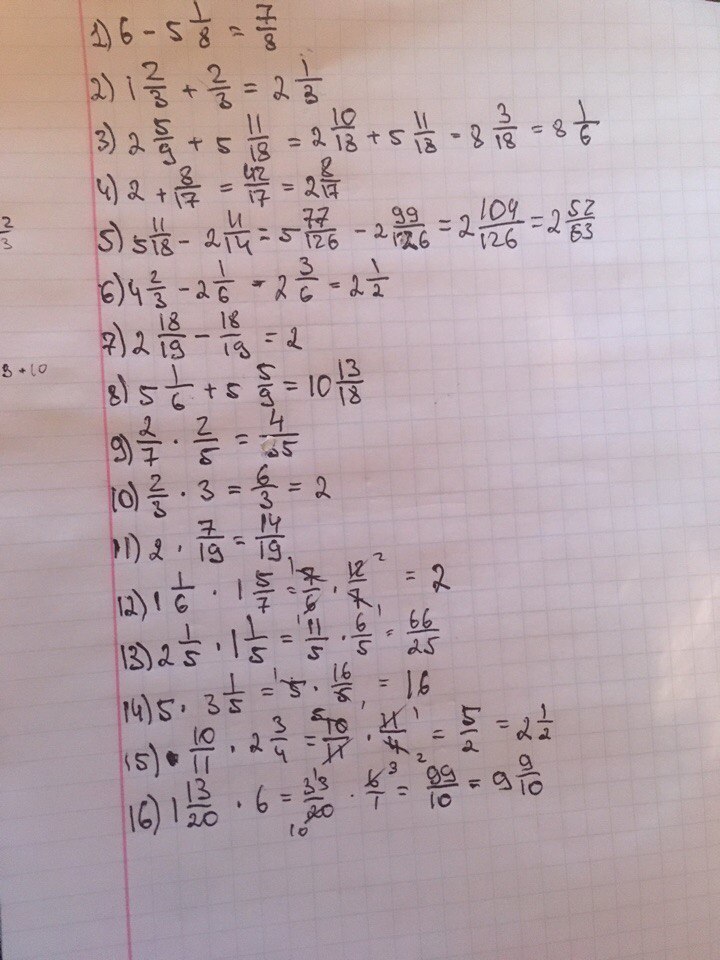 1) 6 - 5 1/8 = 7/8
2) 1 2/3 + 2/3 = 2 1/3
3) 2 5/9 + 5 11/18 = 2 10/18 + 5 11/18 = 8 3/18 = 8 1/6
4) 2 + 8/17 = 42/17 = 2 8/17
2/3
5) 5 11/18 - 2 11/14 = 5 77/126 - 2 99/126 = 2 104/126 = 2 52/63
6) 4 2/3 - 2 1/6 = 2 3/6 = 2 1/2
7) 2 18/19 - 18/19 = 2
8) 5 1/6 + 5 5/9 = 10 13/18
9) 2/7 · 2/5 = 4/35
10) 2/3 · 3 = 6/3 = 2
11) 2 · 7/19 = 14/19
12) 1 1/6 · 1 5/7 = 7/6 · 12/7 = 2
13) 2 1/5 · 1 1/5 = 11/5 · 6/5 = 66/25
14) 5 · 3 1/5 = 5 · 16/5 = 16
15) 10/11 · 2 3/4 = 10/11 · 11/4 = 5/2 = 2 1/2
16) 1 13/20 · 6 = 33/20 · 6/1 = 99/10 = 9 9/10